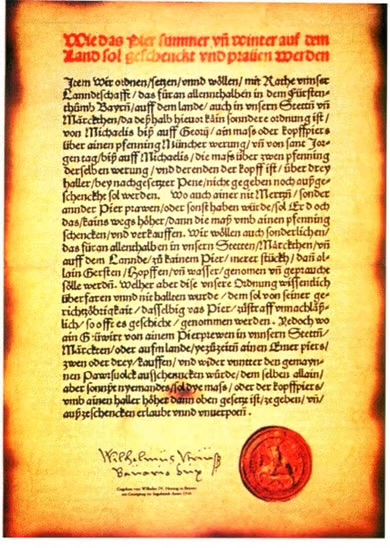 Wie das Pier summer vñ winter auf dem
Land sol geschenckt vnd prauen werden
Item Wir ordnen/setzen/vnnd wöllen/mit Rathe vnnser
Lanndtschafft/das füran allennthalben in dem Fürsten-
thumb Bayrñ/auff dem lande/auch in vnsern Stettñ vñ
Märckthen/da deßhalb hieuor kain sonndere ordnung ist/
von Michaelis biß auff Georij/ain mass oder kopffpiers
über ainen pfenning Müncher werung/vñ von sant Jor-
gen tag/biß auff Michaelis/die mass über zwen pfenning
derselben werung/vnd derenden der kopff ist/über drey
haller/bey nachgesetzer Pene/nicht gegeben noch außge-
schenckht sol werden. Wo auch ainer nit Mertzñ/sonder
annder Pier prawen/oder sonst haben würde/sol Er doch
das/kains wegs höher/dann die mass vmb ainen pfenning
schencken/vnd verkauffen. Wir wöllen auch sonderlichen/
das füran allenthalben in vnsern Stetten/Märckthen/vñ
auff dem Lannde/zu kainem Pier/merer stückh/dañ al-
lain Gersten/Hopffen/vñ wasser/genomen vñ gepraucht
sölle werdñ. Welher aber dise vnsere Ordnung wissendlich
überfaren vnnd nit hallten wurde/dem sol von seiner ge-
richtzöbrigkait/dasselbig vas Pier/zustraff vnnachläß-
lich/so offt es geschicht/genommen werden. Jedoch wo
ain Gäuwirt von ainem Pierprewen in vnnsern Stettñ/
Märckten/oder aufm lande/yezůzeitñ ainen Emer piers/
zwen oder drey/kauffen/vnd wider vnnter den gemayn-
nen Pawrsuolck ausschenncken würde/dem selben allain/
aber sonnst nyemandes/sol dye mass/oder der kopffpiers/
vmb ainen haller höher dann oben gesetzt ist/zegeben/vñ/
außzeschencken erlaubt vnnd vnuerpotñ.
Gegeben von Wilhelm IV. Herzog in Bayern
am Georgitag zu Ingolstadt Anno 1516